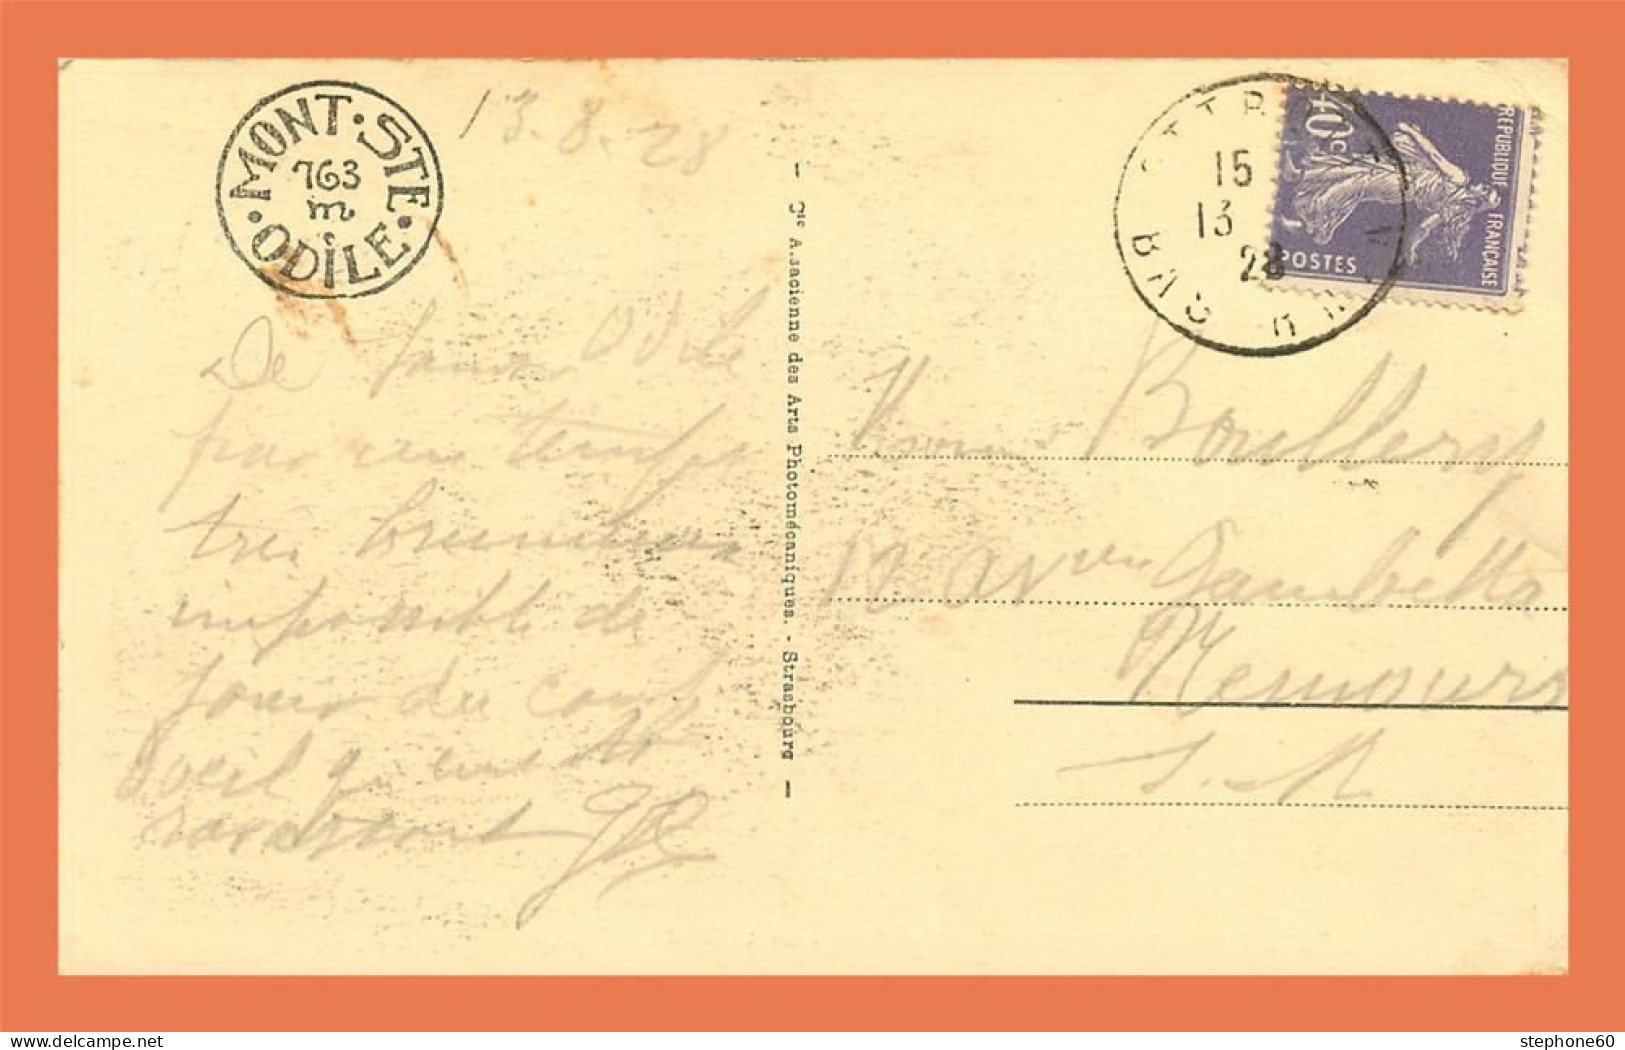 MONT · STE · ODILE ·
763
m
13.8.28
De Odile
par un temps
très brumeux
impossible de
jouir du coup
d'oeil
JR
— Cie Alsacienne des Arts Photomécaniques. - Strasbourg —
15
13
28
40c
REPUBLIQUE FRANÇAISE
POSTES
Boullery
12 Gambetta
Nemours
S.M
delcampe.net
stephone60